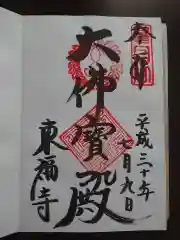 奉拝
大佛寶殿
平成三十年
七月九日
東福寺